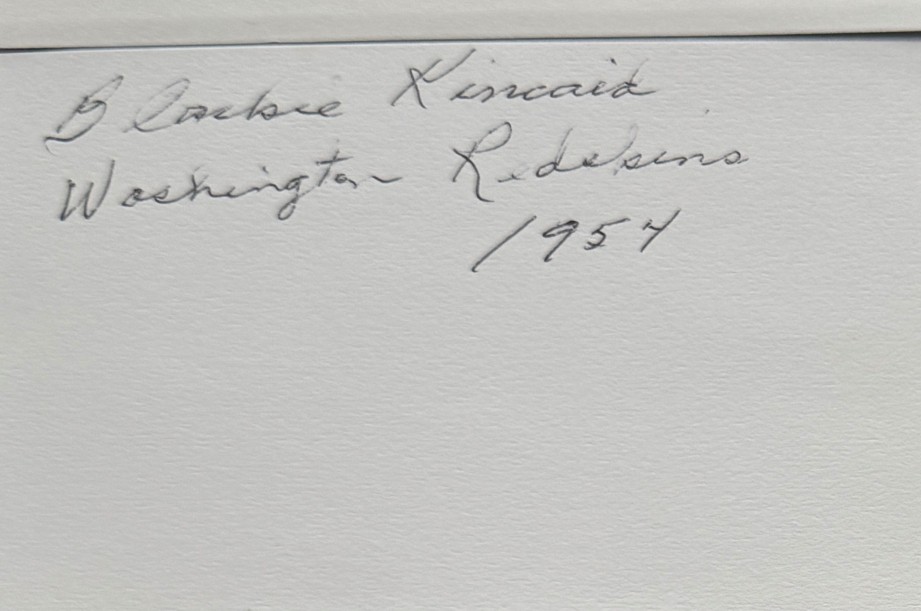 Blackie Kincaid
Washington Redskins
1954